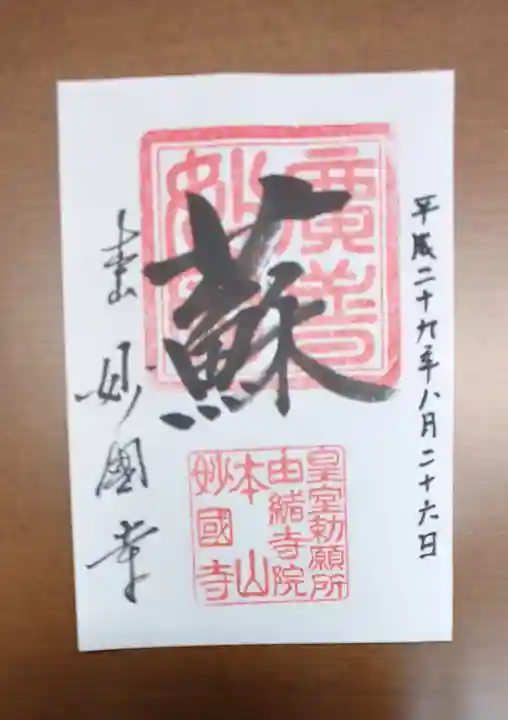 平成二十九年八月二十六日
廣普
妙國
蘇
皇室勅願所
由緒寺院
本山
妙國寺
妙國寺